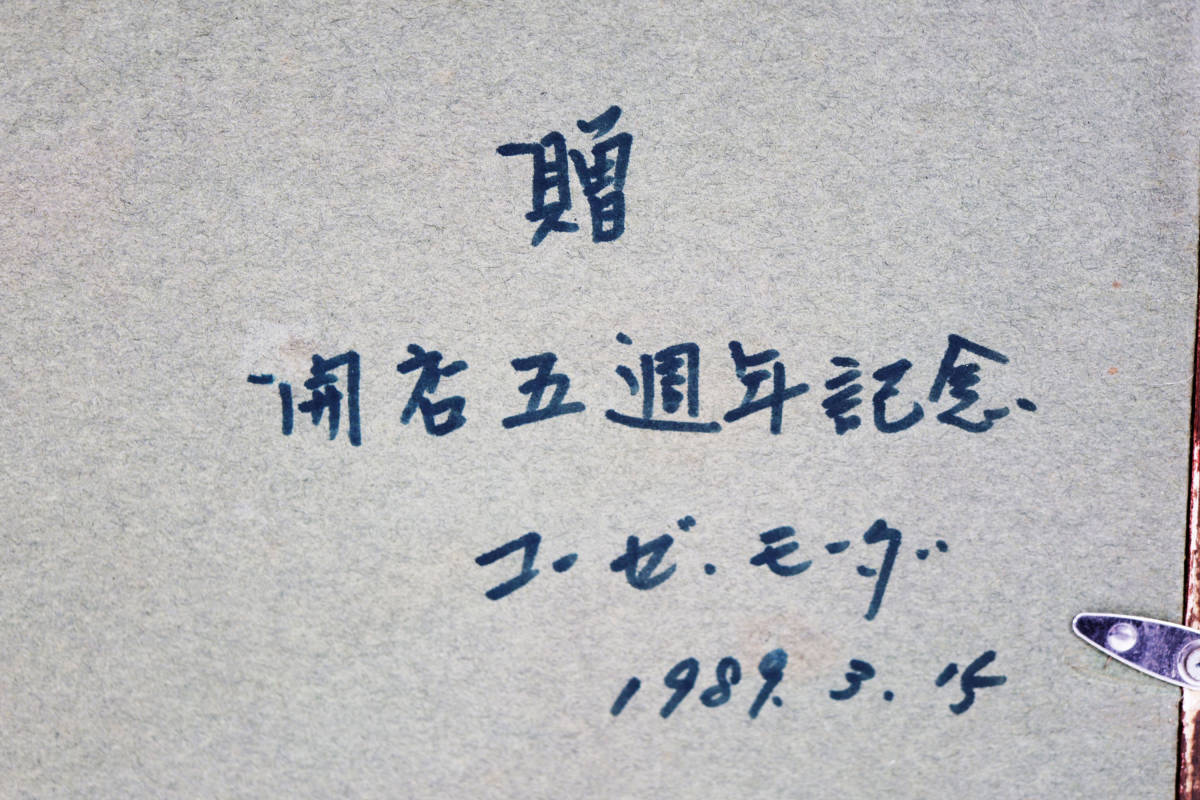 贈
開店五週年記念
コーゼ・モーダ
1989.3.15